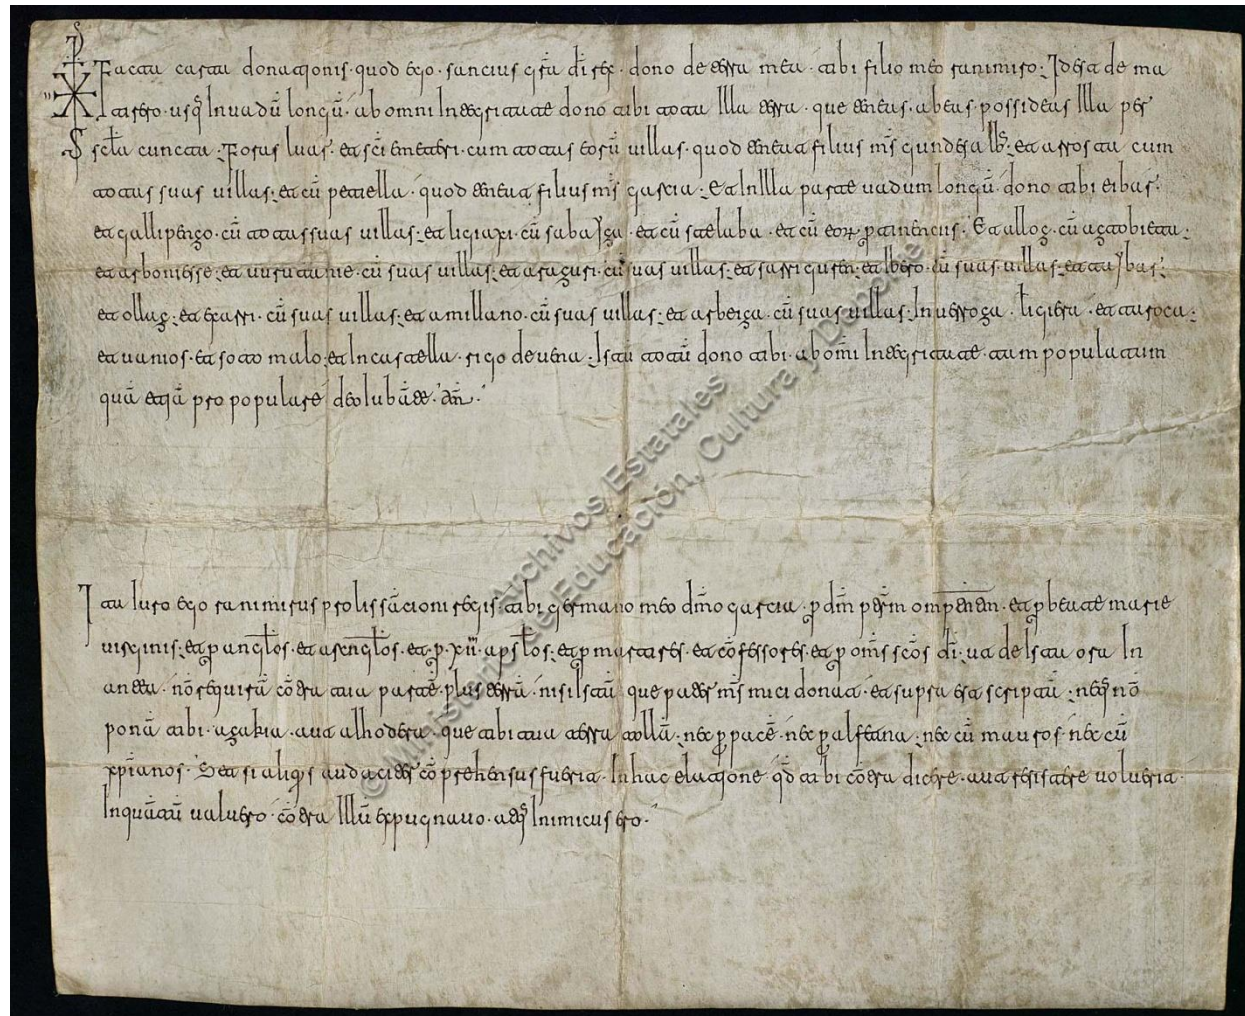 Facta carta donationis quod ego sancius gr̃a dĩ rex dono de terra mea tibi filio meo ranimiro Id est de ma
tirero usq̃ In vadũ longũ ab omni Integritate dono tibi tota Illa terra que teneas abeas possideas Illa per
sc̃la cuncta Foras luas et sc̃i emeteri cum totas eorũ villas quod tenet filius m̃s gundesalbʒ et arrosta cum
totas suas villas et cũ petiella quod tenet filius m̃s garcia Et In Illa parte vadum longũ dono tibi eibas
et gallipenço cũ totas suas villas et ligiaxi cũ saba yça et cũ stelaba et cũ eorꝝ ꝑtinencis Et alloz cũ açtobieta
et arboniesse et ursutanie cũ suas villas et araguri cũ suas villas et sarriguren et Ibero cũ suas villas et ta ybas
et ollaz et exarri cũ suas villas et amillano cũ suas villas et arberça cũ suas villas In verroza ligieta et taroca
et vamos et soto malo et In castella rigo de vena Ista totũ dono tibi ab om̃i Integritate tam populatum
quã etiã pro populare deo lubãte am̃
Ita Iuro ego ranimirus prolis sãcioni regis tibi germano meo dm̃o garcia ꝑ dm̃ patrm̃ omp̃tem̃ et ꝑ beate marie
virginis et ꝑ angl̃os et arcngl̃os et ꝑ xii apsl̃os et ꝑ martires et cõfessores et ꝑ om̃s sc̃os dĩ ut de Ista ora In
antea nõ requirã cõtra tua parte plus terrã nisi Istã que pater m̃s mici donat et supra est scriptũ neqʒ nõ
ponã tibi azakia aut alhodera que tibi tua terra tollã nec ꝑ pace nec ꝑ alfetena nec cũ mauros nec cũ
xp̃ianos Set si aliqis audaciter cõprehensus fuerit In hac elatione q̃d tibi cõtra dicere aut resistere voluerit
In quãtũ valuero cõtra Illũ expugnavo atqʒ Inimicus ero